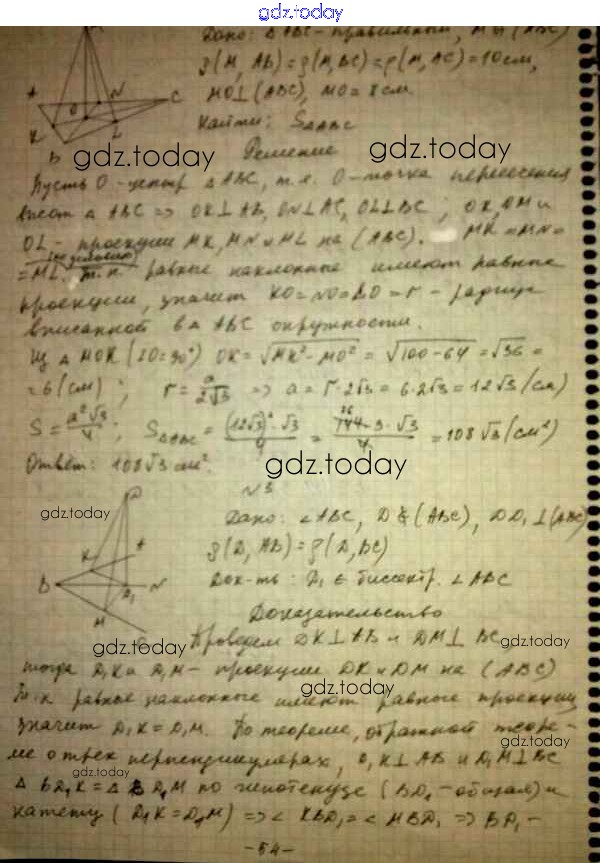 gdz.today
Дано: △ABC - правильный, M ∉ (ABC)
ρ(M, AB) = ρ(M, BC) = ρ(M, AC) = 10 см,
MO ⊥ (ABC), MO = 8 см
Найти: S△ABC
gdz.today
gdz.today
Решение
A
N
C
O
K
L
B
Пусть O - центр △ABC, т.е. O - точка пересечения
△ABC => OK ⊥ AB, ON ⊥ AC, OL ⊥ BC; OK, OM и
OL - проекции MK, MN и ML на (ABC). MK = MN =
(по условию)
= ML. Т.к. равные наклонные имеют равные
проекции, значит KO = NO = LO = r - радиус
вписанной в △ABC окружности.
Из △MOK (∠O = 90°) OK = √MK² - MO² = √100 - 64 = √36 =
= 6 (см); r = a/2√3 => a = r · 2√3 = 6 · 2√3 = 12√3 (см)
S = a²√3/4; S△ABC = (12√3)² · √3/4 = 144 · 3 · √3/4 = 108√3 (см²)
Ответ: 108√3 см².
gdz.today
N 3
D
gdz.today
K
A
B
D₁
N
M
C
Дано: ∠ABC, D ∉ (ABC), DD₁ ⊥ (ABC)
ρ(D, AB) = ρ(D, BC)
Док-ть: D₁ ∈ биссектр. ∠ABC
Доказательство
Проведем DK ⊥ AB и DM ⊥ BC,
gdz.today
gdz.today
тогда D₁K и D₁M - проекции DK и DM на (ABC)
gdz.today
Т.к равные наклонные имеют равные проекции,
значит D₁K = D₁M. По теореме, обратной теоре-
gdz.today
ме о трех перпендикулярах, D₁K ⊥ AB и D₁M ⊥ BC
gdz.today
△BD₁K = △BD₁M по гипотенузе (BD₁ - общая) и
катету (D₁K = D₁M) => ∠KBD₁ = ∠MBD₁ => BD₁ -
- 54 -